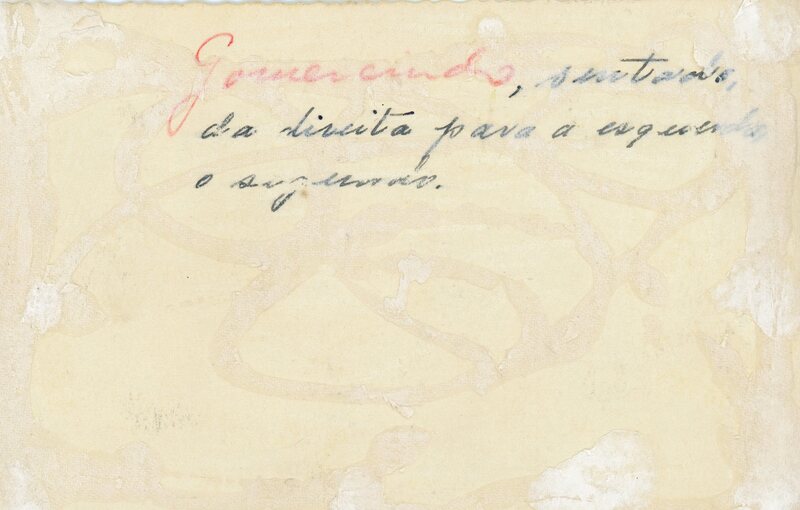 Gomercindo, sentado,
da direita para a esquerda
o segundo.